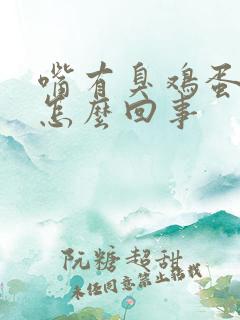 嘴有臭鸡蛋
怎麼回事
阮糖超甜
未经同意禁止转载